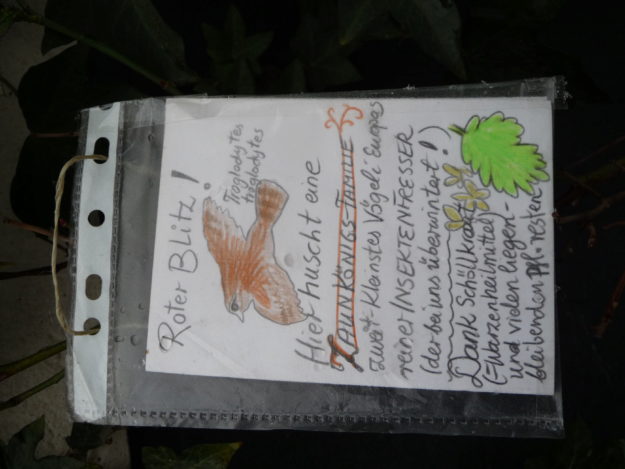 Roter Blitz!
Troglodytes
troglodytes
Hier huscht eine
ZAUNKÖNIGS-FAMILIE
zweit-kleinstes Vögeli Europas
reiner INSEKTENFRESSER
(der bei uns überwintert!)
Dank Schöllkraut
(=Warzenheilmittel)
und vielen liegen-
bleibenden Pfl.resten